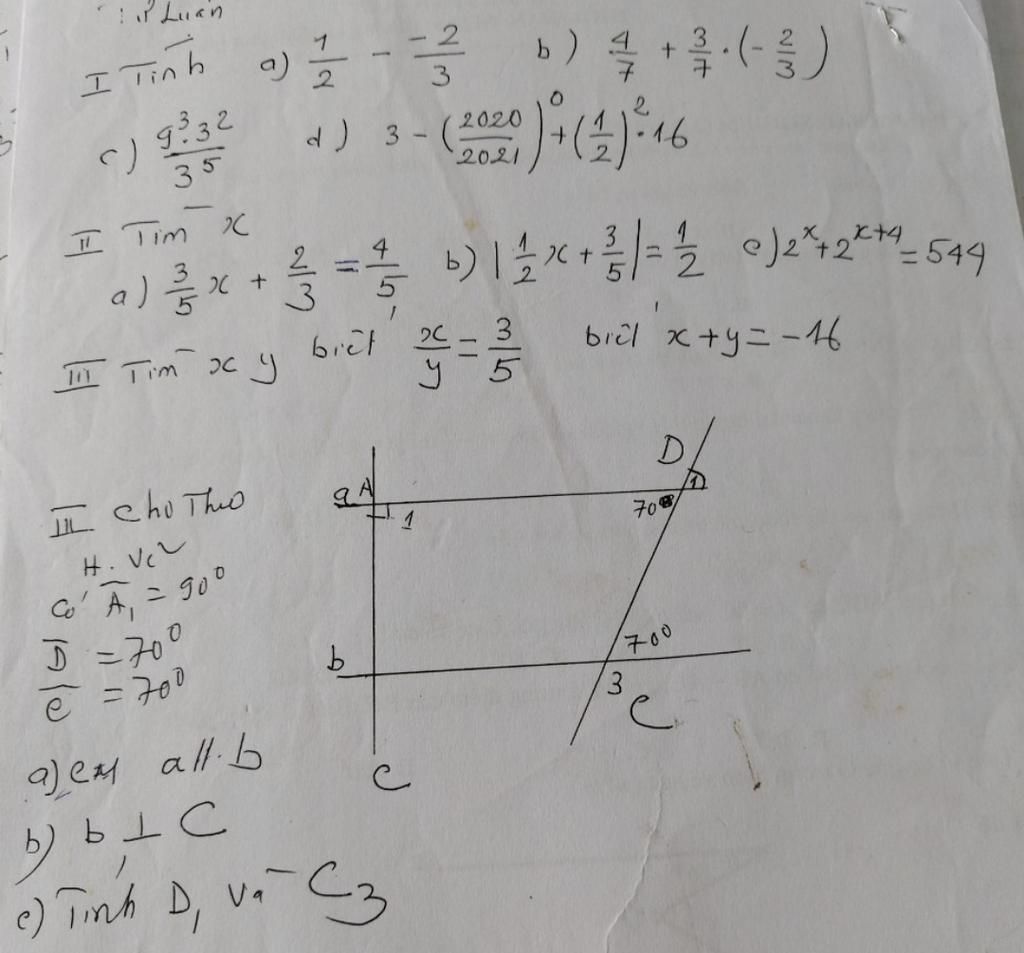 Luận
I Tính a) 1/2 - -2/3 b) 4/7 + 3/7 . (-2/3)
c) 9³.3²/3⁵ d) 3 - (2020/2021)⁰ + (1/2)².16
II Tìm x
a) 3/5 x + 2/3 = 4/5 b) |1/2 x + 3/5| = 1/2 c) 2ˣ + 2ˣ⁺⁴ = 544
III Tìm x y biết x/y = 3/5 biết x + y = -16
III Cho Theo
H. Vẽ
Có A₁ = 90°
D = 70°
C = 70°
a A 1 D 1
70°
b 70°
3 C
c
a) CM a // b
b) b ⊥ C
c) Tính D₁ và C₃